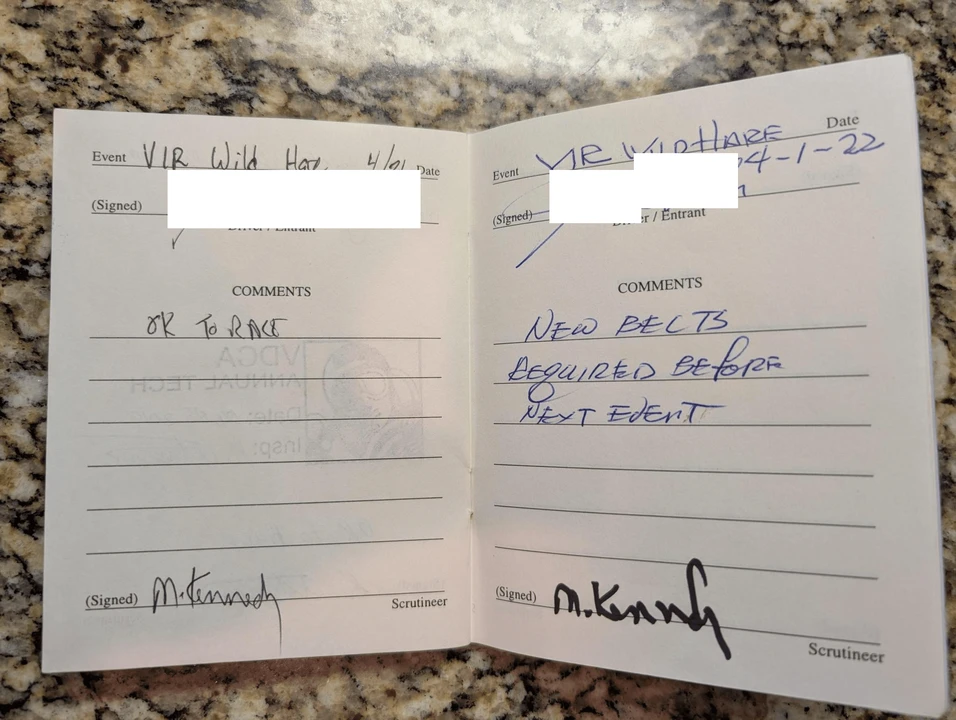 Event VIR Wild Hare 4/21 Date
(Signed)
Driver / Entrant
COMMENTS
OK TO RACE
VDCA
ANNUAL TECH
Date:
Insp:
(Signed) M. Kennedy
Scrutineer
Event VIR WILD HARE Date
04-1-22
(Signed)
Driver / Entrant
COMMENTS
NEW BELTS
REQUIRED BEFORE
NEXT EVENT
(Signed) M. Kennedy
Scrutineer